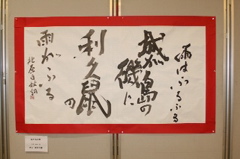 雨はふるふる
城ヶ島の
磯に
利久鼠の
雨がふる